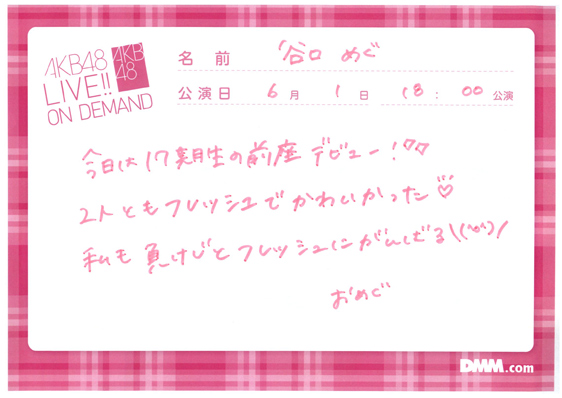 AKB48
LIVE!!
ON DEMAND
AKB
48
名前 谷口 めぐ
公演日 6月 1日 18:00 公演
今日は17期生の前座デビュー!♡♡
2人ともフレッシュでかわいかった♡
私も負けじとフレッシュにがんばる\(^o^)/
おめぐ
DMM.com